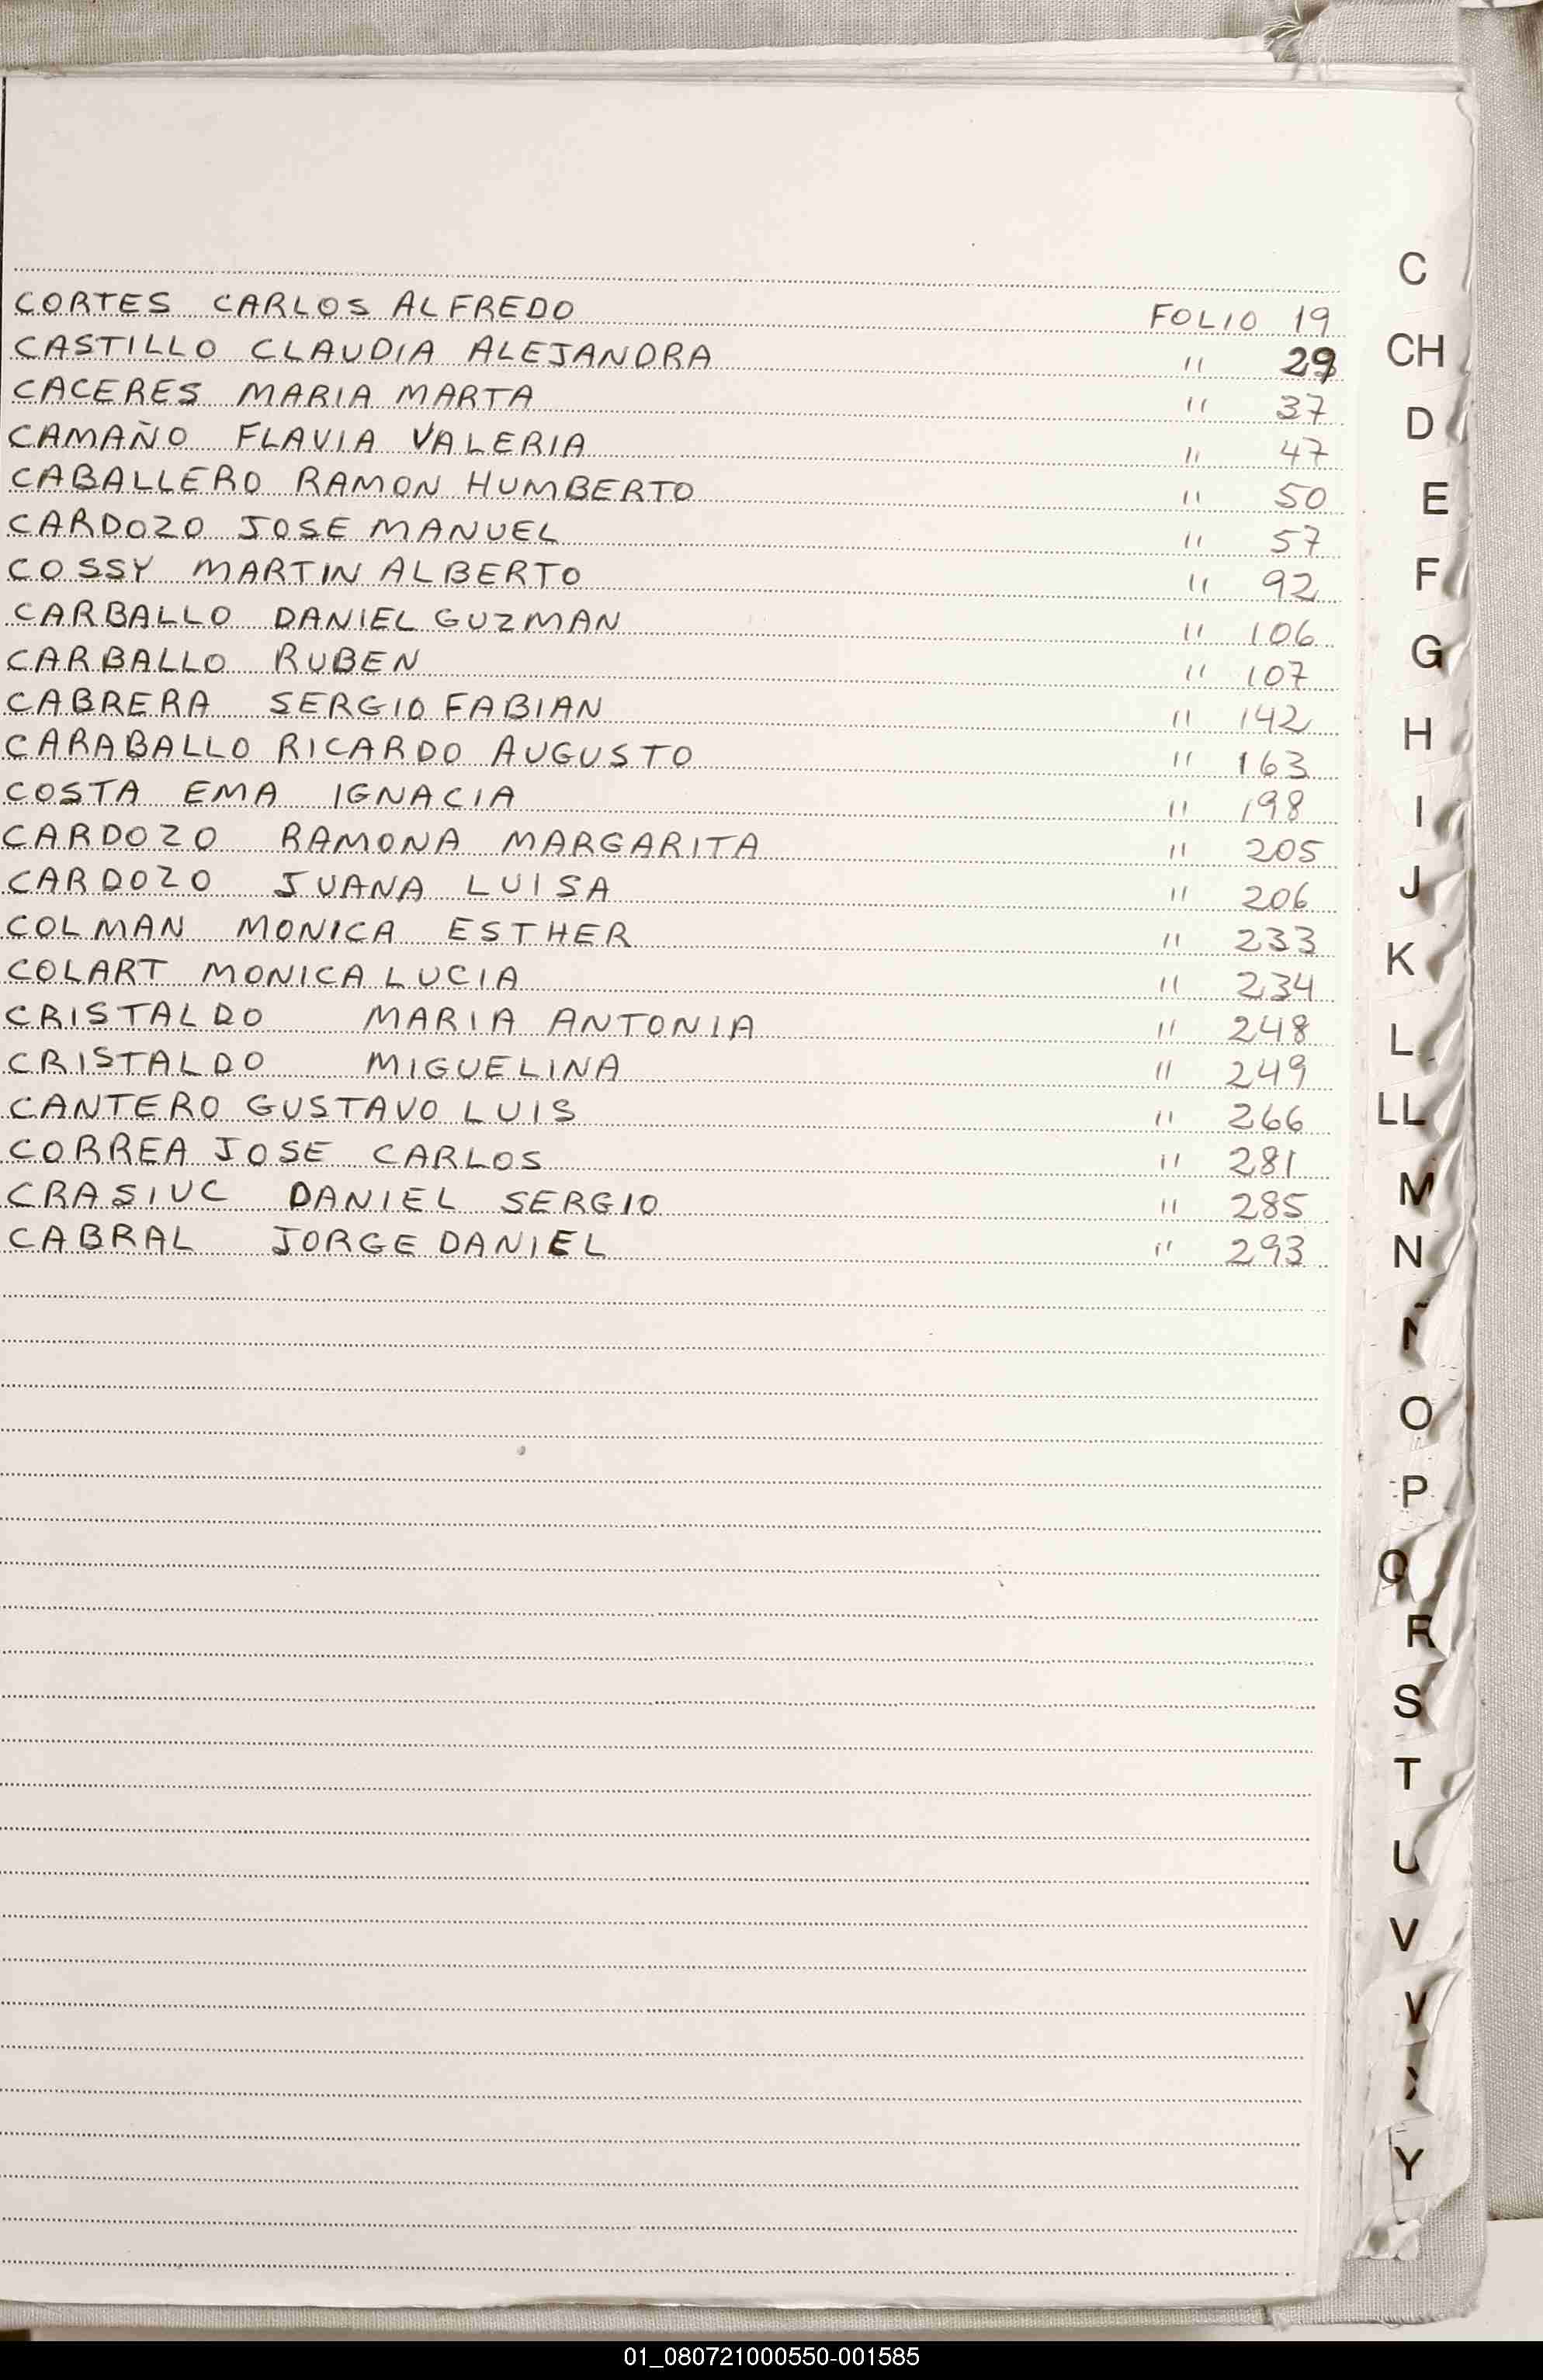 CORTES CARLOS ALFREDO FOLIO 19
CASTILLO CLAUDIA ALEJANDRA " 29
CACERES MARIA MARTA " 37
CAMAÑO FLAVIA VALERIA " 47
CABALLERO RAMON HUMBERTO " 50
CARDOZO JOSE MANUEL " 57
COSSY MARTIN ALBERTO " 92
CARBALLO DANIEL GUZMAN " 106
CARBALLO RUBEN " 107
CABRERA SERGIO FABIAN " 142
CARABALLO RICARDO AUGUSTO " 163
COSTA EMA IGNACIA " 198
CARDOZO RAMONA MARGARITA " 205
CARDOZO JUANA LUISA " 206
COLMAN MONICA ESTHER " 233
COLART MONICA LUCIA " 234
CRISTALDO MARIA ANTONIA " 248
CRISTALDO MIGUELINA " 249
CANTERO GUSTAVO LUIS " 266
CORREA JOSE CARLOS " 281
CRASIUC DANIEL SERGIO " 285
CABRAL JORGE DANIEL " 293
C
CH
D
E
F
G
H
I
J
K
L
LL
M
N
O
P
Q
R
S
T
U
V
Y
01_080721000550-001585